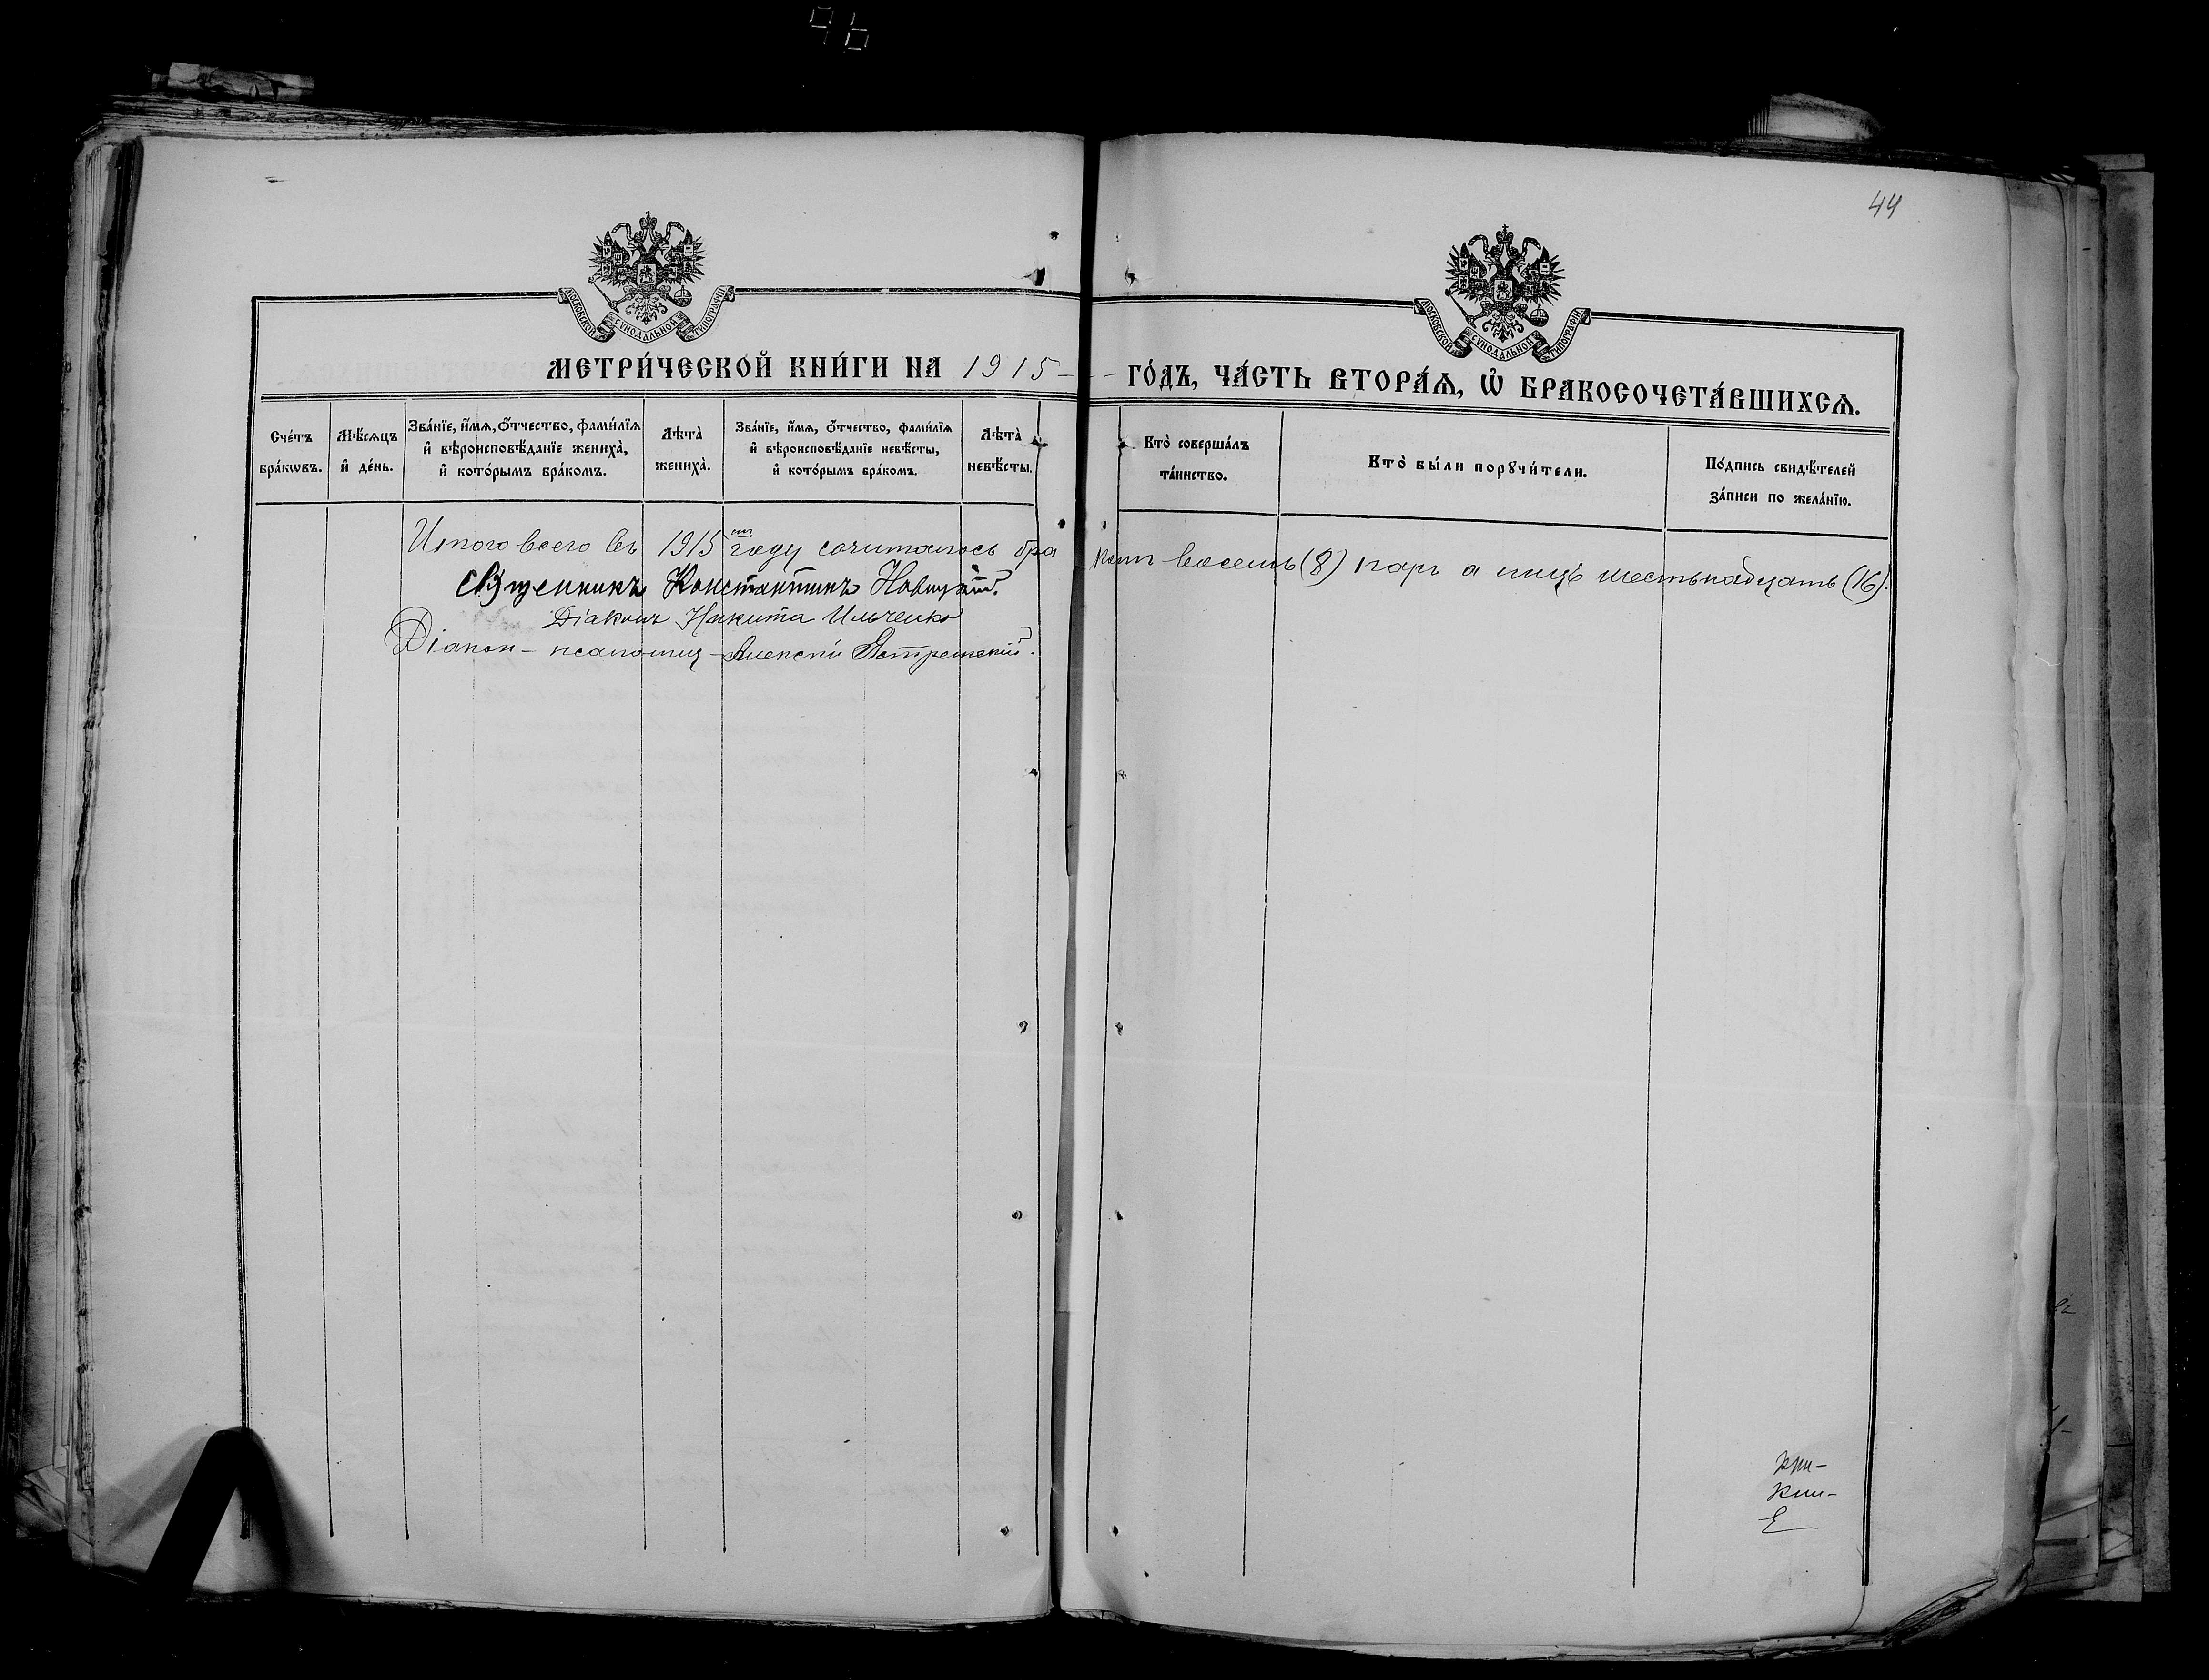 44
МОСКОВСКОЙ СѴНОДАЛЬНОЙ ТИПОГРАФІИ
МОСКОВСКОЙ СѴНОДАЛЬНОЙ ТИПОГРАФІИ
МЕТРИ́ЧЕСКОЙ КНИ́ГИ НА 1915 ГО́ДЪ, ЧА́СТЬ ВТОРА́Ѧ, Ѡ҆ БРАКОСОЧЕТА́ВШИХСѦ.
Сче́тъ бра́кѡвъ.
Мѣ́сѧцъ и҆ де́нь.
Зва́нїе, и҆́мѧ, ѻ҆́тчество, фами́лїѧ и҆ вѣроисповѣ́данїе жениха̀, и҆ кото́рымъ бра́комъ.
Лѣта̀ жениха̀.
Зва́нїе, и҆́мѧ, ѻ҆́тчество, фами́лїѧ и҆ вѣроисповѣ́данїе невѣ́сты, и҆ кото́рымъ бра́комъ.
Лѣта̀ невѣ́сты.
Кто̀ соверша́лъ та́инство.
Кто̀ бы́ли порꙋчи́тели.
По́дпись свидѣ́телей за́писи по жела́нїю.
Итого всего въ 1915 году сочиталось бракомъ восемь (8) паръ а лицъ шестьнадцать (16).
Священникъ Константинъ
Діаконъ Никита Ильченко
Діакон - псаломщ - Алексѣй Ястремскій.